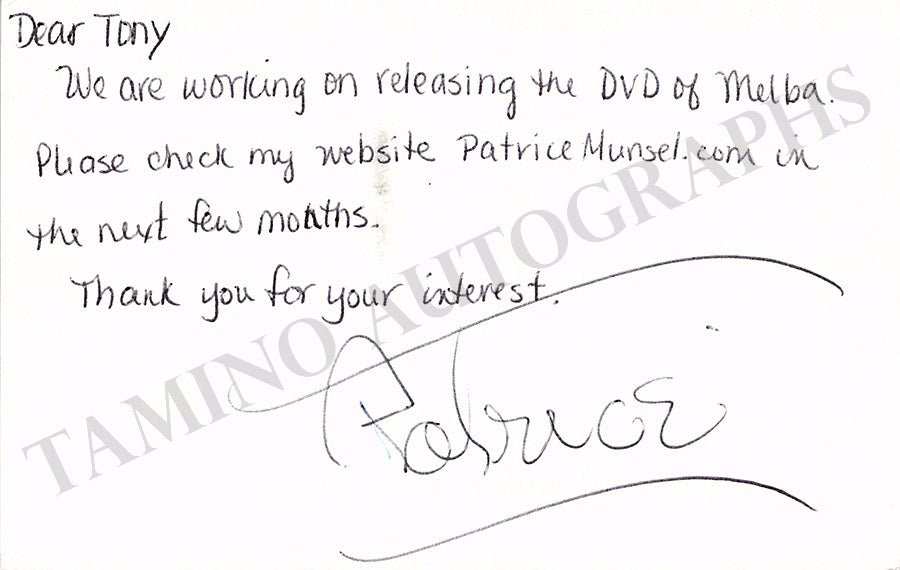 Dear Tony
We are working on releasing the DVD of Melba.
Please check my website PatriceMunsel.com in
the next few months.
Thank you for your interest.
Patrice
TAMINO AUTOGRAPHS